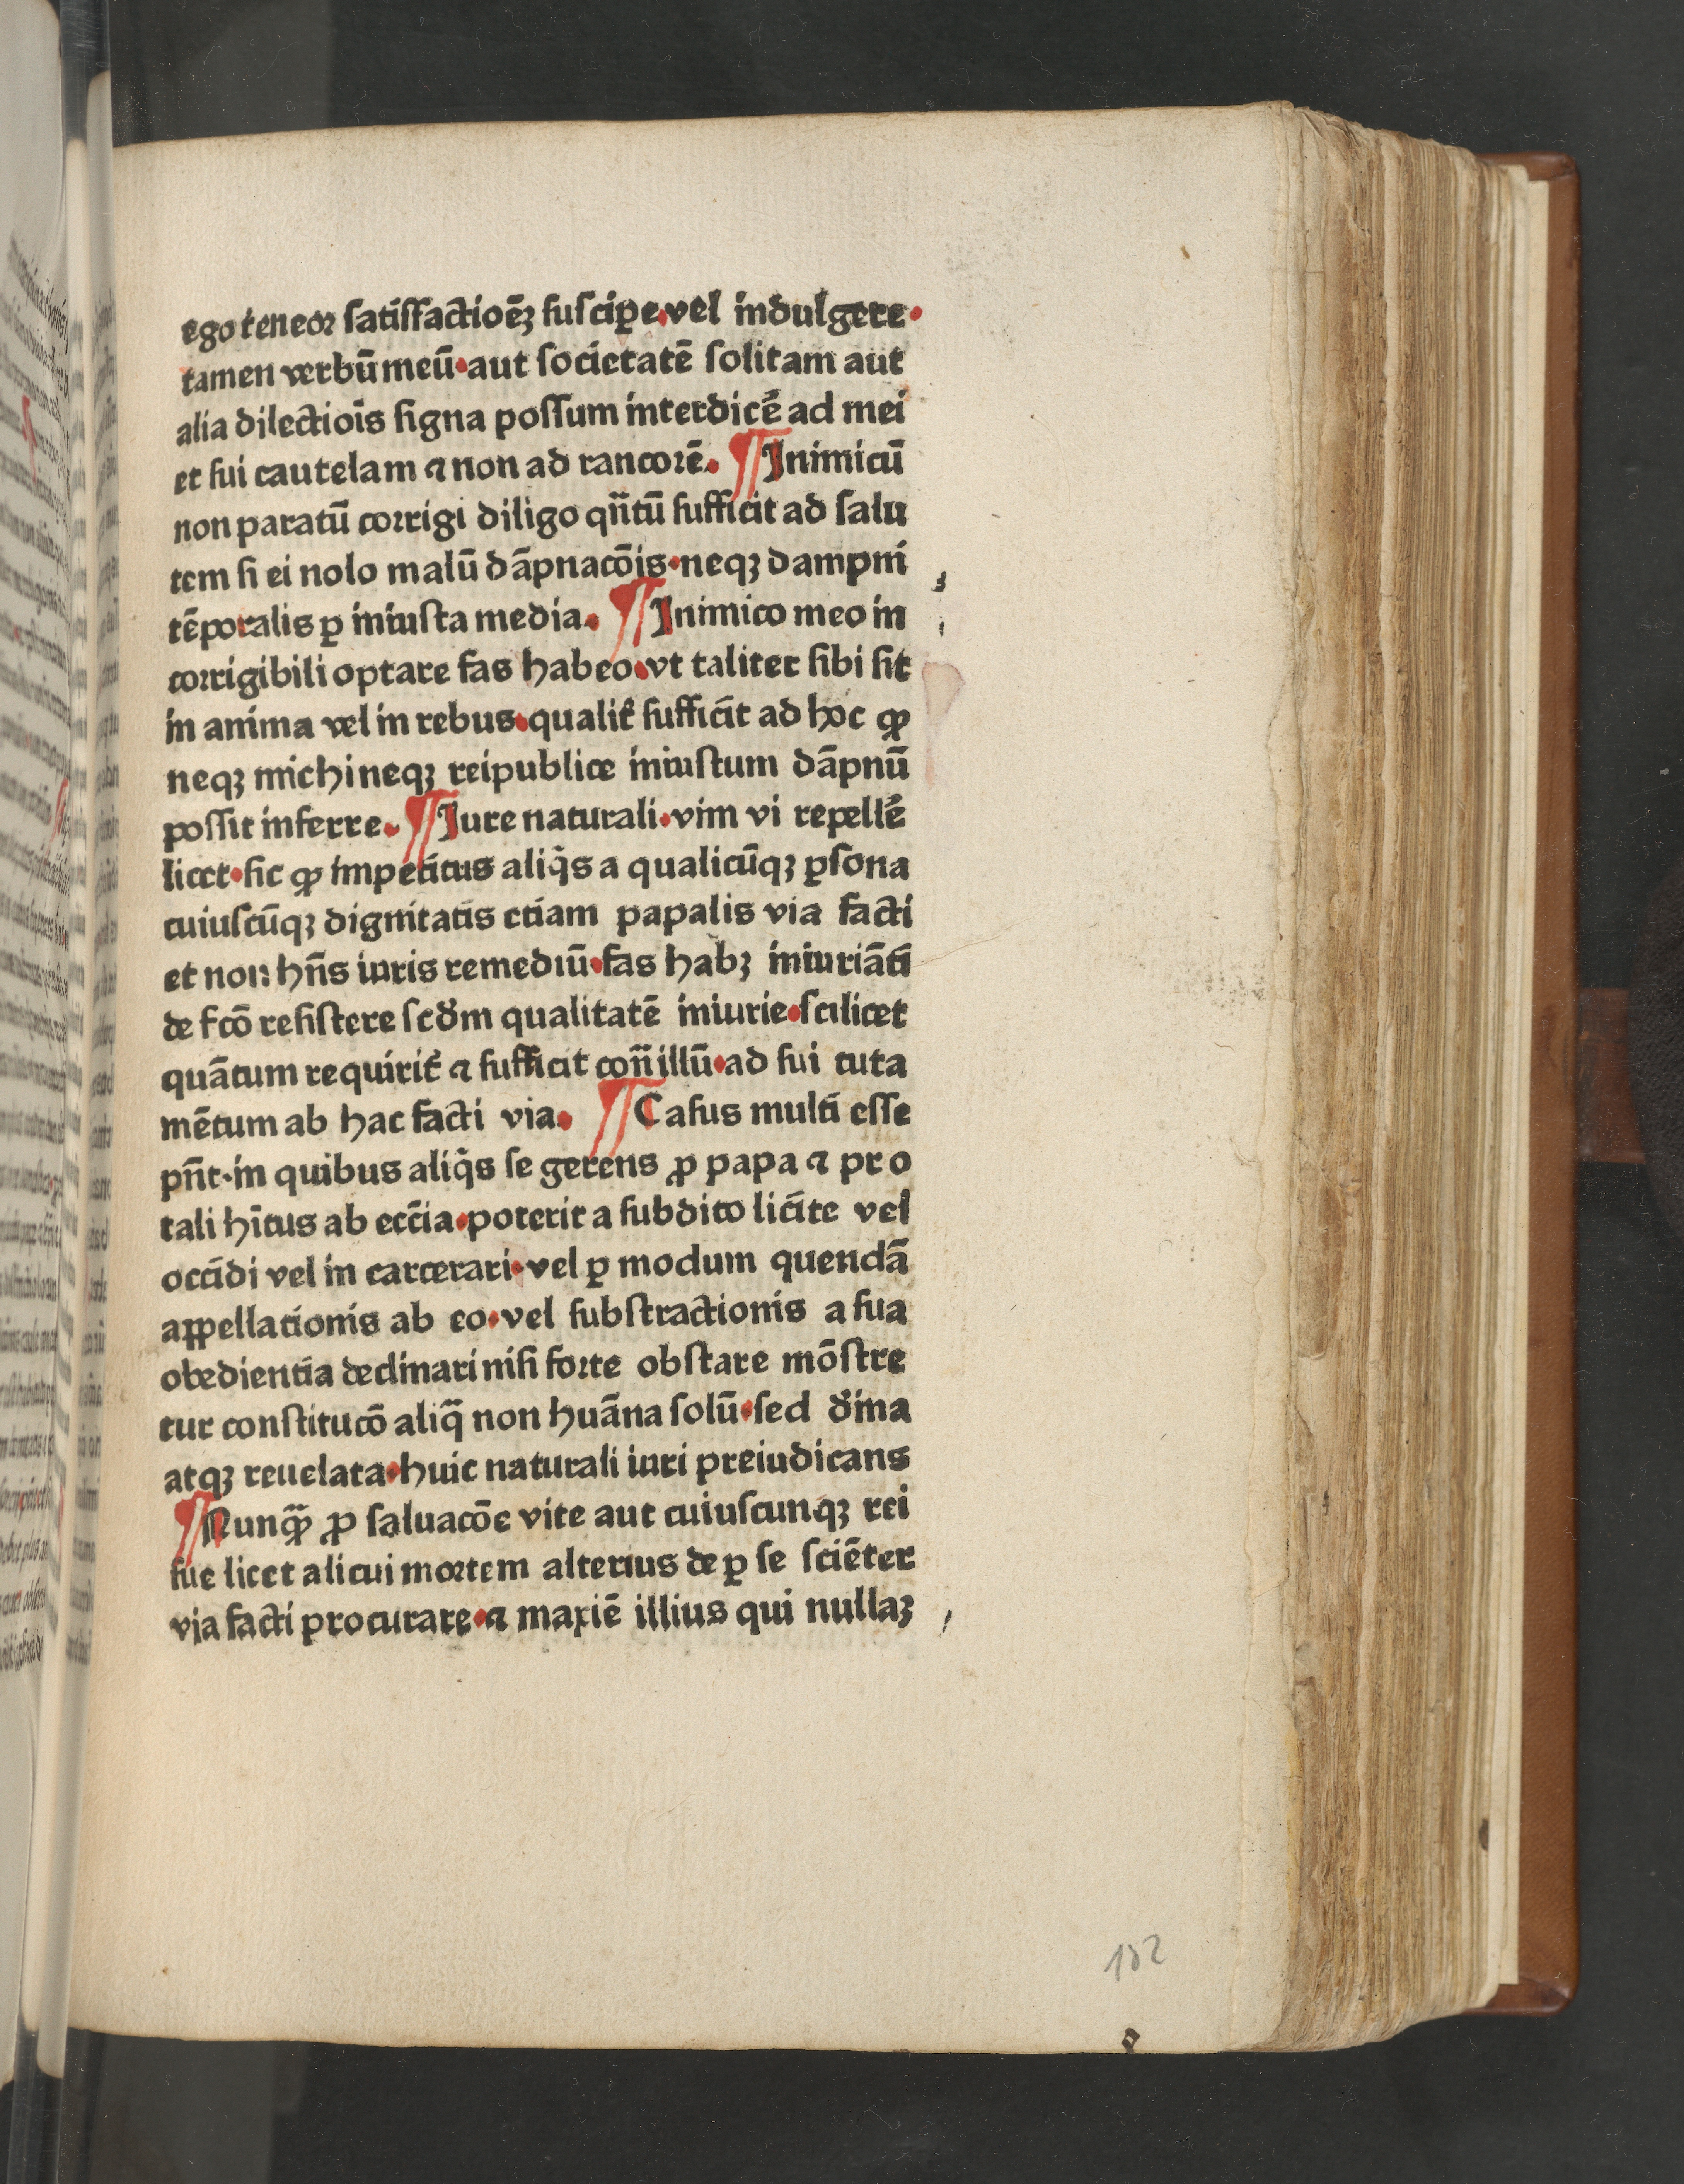 ego teneoꝛ ſatiſfactioēꝫ ſuſciꝑe.vel indulgere.
tamen verbū meū.aut ſocietatē ſolitam aut
alia dilectioīs ſigna poſſum interdicē̛ ad mei
et ſui cautelam ⁊ non ad rancoꝛē. ¶Inimicū
non paratū coꝛrigi diligo qn̄tū ſufficit ad ſalu
tem ſi ei nolo malū dāpnacōis.neqꝫ dampni
tēporalis ꝑ iniuſta media. ¶Inimico meo in
coꝛrigibili optare fas habeo.vt taliter ſibi ſit
in anima vel in rebus.qualit̛ ſufficit ad hoc ꝙ
neqꝫ michi neqꝫ reipublice iniuſtum dāpnū
poſſit inferre. ¶Iure naturali.vim vi repellē̛
licet.ſic ꝙ impetitus aliq̇s a qualicūqꝫ ꝑſona
cuiuſcūqꝫ dignitatis etiam papalis via facti
et non hn̄s iuris remediū.fas habꝫ iniuriāti
de fcō reſiſtere ſcd̛m qualitatē iniurie.ſcilicet
quātum requirit̛ ⁊ ſufficit con̄ illū.ad ſui tuta
mētum ab hac facti via. ¶Caſus multi eſſe
pn̄t.in quibus aliq̇s ſe gerens ꝓ papa ⁊ pro
tali hītus ab eccīa.poterit a ſubdito licīte vel
occidi vel in carcerari.vel ꝑ modum quendā
appellationis ab eo.vel ſubſtractionis a ſua
obedientia declinari niſi foꝛte obſtare mōſtre
tur conſtitucō aliq̄ non huāna ſolū.ſed d̛ina
atqꝫ reuelata.huic naturali iuri preiudicans
¶Nunqꝫ̄ ꝓ ſaluacōe vite aut cuiuſcunqꝫ rei
ſue licet alicui moꝛtem alterius de ꝑ ſe ſciēter
via facti procurare.⁊ maxiē illius qui nullaꝫ